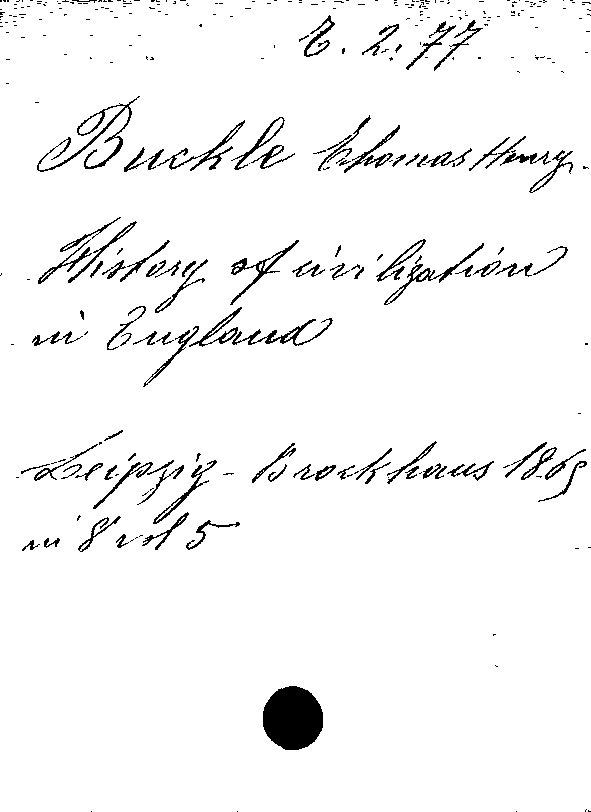 E. 2. 77
Buckle Thomas Henry.
History of civilization
in England
Leipzig - Brockhaus 1865
in 8° vol 5